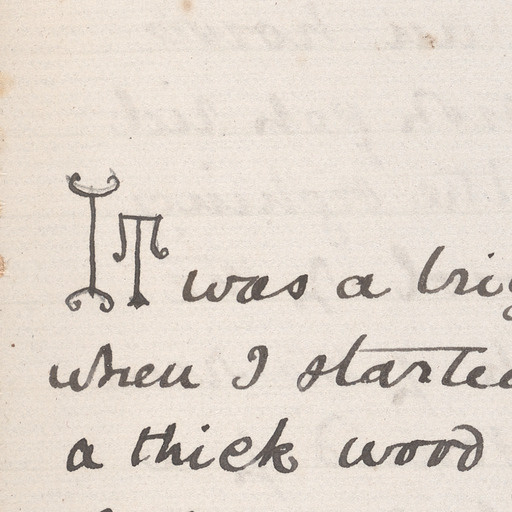 IT was a brig
when I started
a thick wood